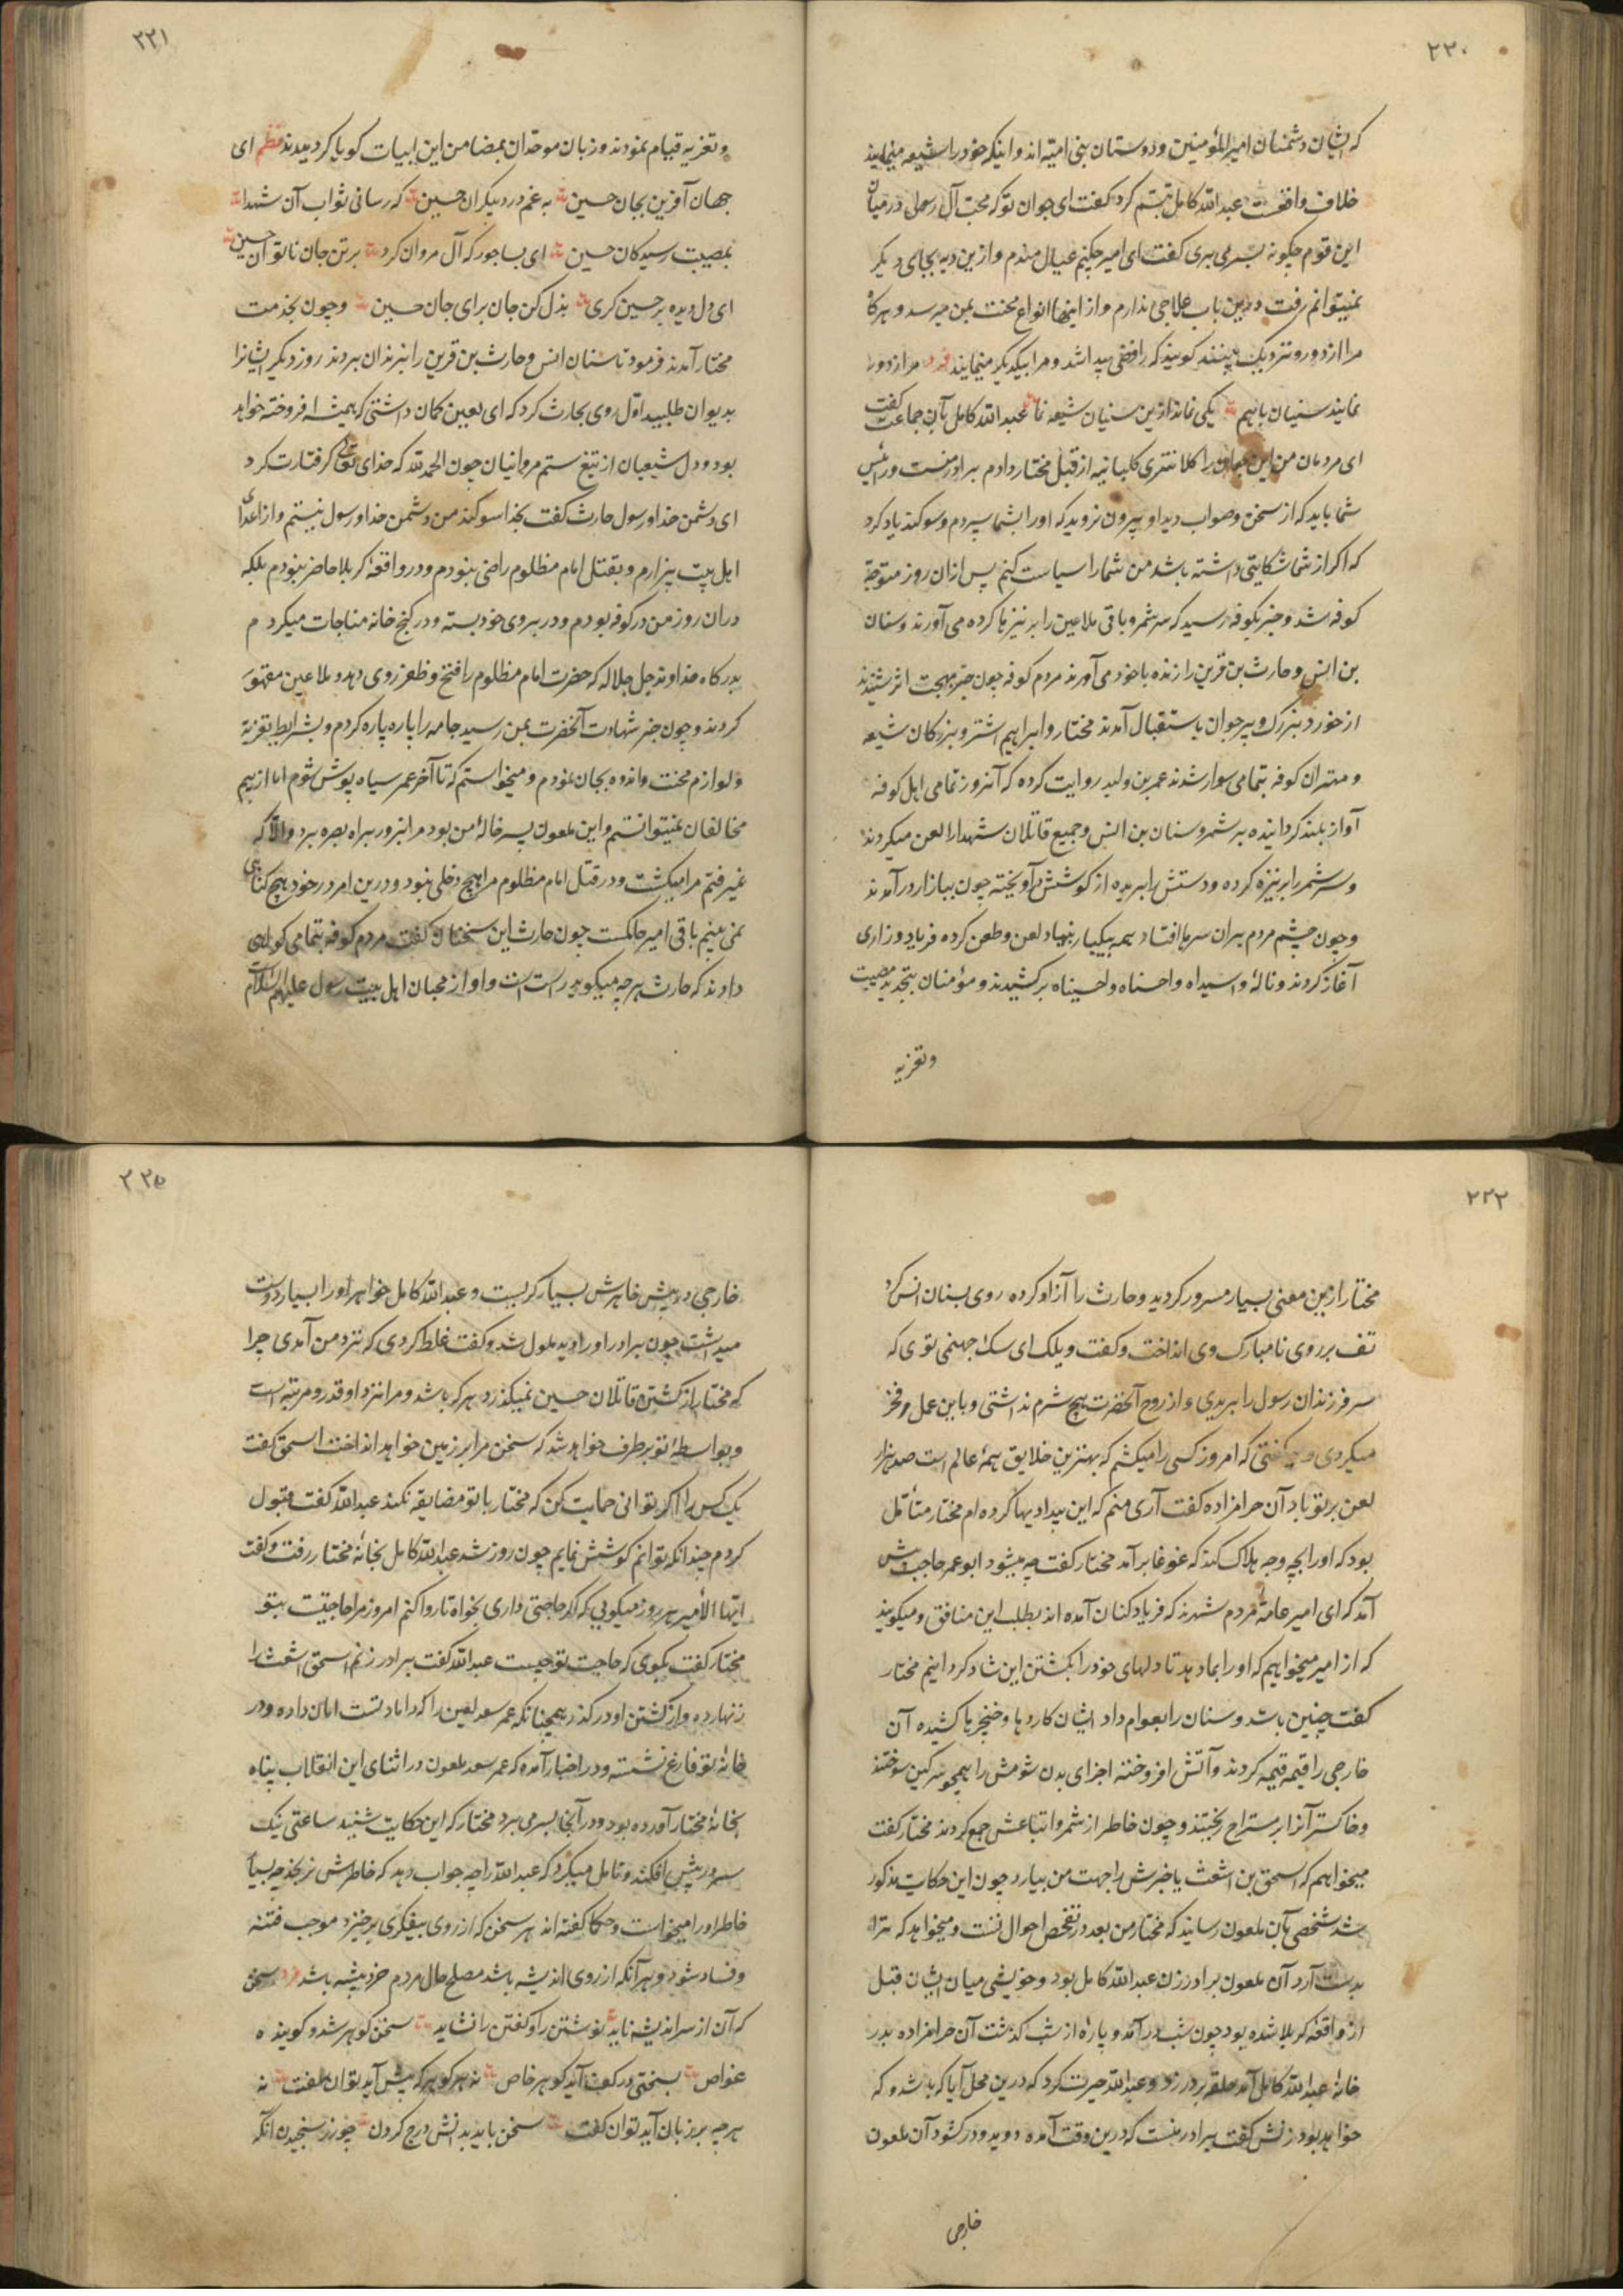 ۲۲۰
که ایشان دشمنان امیرالمؤمنین و دوستان بنی امیه اند و اینکه خود را شیعه مینمایند
خلاف واقعست عبدالله کامل تبسم کرد گفت ای جوان تو که محب آل رسولی در میان
این قوم چگونه بسر می بری گفت ای امیر چکنم عیال مندم و ازین دیه بجای دیگر
نمیتوانم رفت و درین باب علاجی ندارم و از اینها انواع محنت بمن میرسد و هرگاه
مرا از دور و نزدیک ببینند گویند که رافضی پیدا شد و مرا بیکدیگر مینمایند فرد مرا از دور
نمایند سنیان باهم یکی نماند ازین سنیان شیعه نما عبدالله کامل بآن جماعت گفت
ای مردمان من این جوان را کلانتری کلبانیه از قبل مختار دادم برادر منست و رئیس
شما باید که از سخن و صواب دید او بیرون نروید که او را بشما سپردم و سوگند یاد کرد
که اگر از شما شکایتی داشته باشد من شما را سیاست کنم پس ازان روز متوجه
کوفه شد و خبر بکوفه رسید که سر شمر و باقی ملاعین را بر نیزها کرده می آورند و سنان
بن انس و حارث بن قرین را زنده با خود می آورند مردم کوفه چون خبر بهجت اثر شنیدند
از خورد بزرگ و پیر جوان باستقبال آمدند مختار و ابراهیم اشتر و بزرگان شیعه
و مهتران کوفه بتمامی سوار شدند عمر بن ولید روایت کرده که آنروز تمامی اهل کوفه
آواز بلند گردانیده بر شمر و سنان بن انس و جمیع قاتلان شهدا را لعن میکردند
و سر شمر را بر نیزه کرده و دستش را بریده از گوشش آویخته چون ببازار درآمدند
و چون چشم مردم بران سرها افتاد همه بیکبار بنیاد لعن و طعن کرده فریاد و زاری
آغاز کردند و نالهٔ وا سیداه وا حسناه وا حسیناه برکشیدند و مؤمنان بتجدید مصیبت
و تعزیه
۲۲۱
و تعزیه قیام نمودند و زبان موحدان بمضامن این ابیات گویا گردیدند نظم ای
جهان آفرین بجان حسین به غم درد بیکران حسین که رسانی ثواب آن شهدا
بمصیبت رسیدگان حسین ای بسا جور که آل مروان کرد بر تن جان ناتوان حسین
ای دل و دیده بر حسین گری بذل کن جان برای جان حسین و چون بخدمت
مختار آمدند فرمود تا سنان انس و حارث بن قرین را بزندان بردند روز دیگر ایشانرا
بدیوان طلبید اول روی بحارث کرد که ای لعین گمان داشتی که همیشه افروخته خواهد
بود و دل شیعیان از تیغ ستم مروانیان چون الحمدلله که خدای تعالی گرفتارت کرد
ای دشمن خدا و رسول حارث گفت بخدا سوگند من دشمن خدا و رسول نیستم و از اعدای
اهل بیت بیزارم و بقتل امام مظلوم راضی نبودم و در واقعهٔ کربلا حاضر نبودم بلکه
دران روز من در کوفه بودم و در بروی خود بسته و در کنج خانه مناجات میکردم
بدرگاه خداوند جل جلاله که حضرت امام مظلوم را فتح و ظفر روی دهد و ملاعین مقهور
گردند و چون خبر شهادت آنحضرت بمن رسید جامه را پاره پاره کردم و بشرایط تعزیه
و لوازم محنت و اندوه بجان نمودم و میخواستم که تا آخر عمر سیاه پوش شوم اما از بیم
مخالفان نمیتوانستم و این ملعون پسر خالهٔ من بود مرا بزور براه بصره برد و الا که
نمیرفتم مرا میکشت و در قتل امام مظلوم مرا هیچ دخلی نبود و درین امر در خود هیچ گناهی
نمی بینم باقی امیر حاکمست چون حارث این سخنان گفت مردم کوفه بتمامی گواهی
دادند که حارث هرچه میگوید راست است و او از محبان اهل بیت رسول علیهم السلام
۲۲۲
مختار ازین معنی بسیار مسرور گردید و حارث را آزاد کرده روی بسنان انس کرد
تف بر روی نامبارک وی انداخت و گفت ویلک ای سگ جهنمی توی که
سر فرزندان رسول را بریدی و از روح آنحضرت هیچ شرم نداشتی و باین عمل فخر
میکردی و میگفتی که امروز کسی را میکشم که بهترین خلایق همهٔ عالم است صد هزار
لعن بر تو باد آن حرامزاده گفت آری منم که این بیدادیها کرده ام مختار متأمل
بود که او را بچه وجه هلاک کند که غوغا برآمد مختار گفت چه میشود ابوعمر حاجب پیش
آمد که ای امیر عامهٔ مردم شهرند که فریاد کنان آمده اند بطلب این منافق و میگویند
که از امیر میخواهیم که او را بما دهد تا دلهای خود را بکشتن این شاد گردانیم مختار
گفت چنین باشد و سنان را بعوام داد ایشان کاردها و خنجرها کشیده آن
خارجی را قیمه قیمه کردند و آتش افروخته اجزای بدن شومش را همچو سرگین سوختند
و خاکستر آنرا بر مستراح ریختند و چون خاطر از شمر و اتباعش جمع کردند مختار گفت
میخواهم که اسحق بن اشعث یا خبرش را جهت من بیارد چون این حکایت مذکور
شد شخصی بآن ملعون رسانید که مختار من بعد در تفحص احوال تست و میخواهد که ترا
بدست آرد آن ملعون برادر زن عبدالله کامل بود و خویشی میان ایشان قبل
از واقعهٔ کربلا شده بود چون شب درآمد و پارهٔ از شب گذشت آن حرامزاده بدر
خانهٔ عبدالله کامل آمد حلقه بر در زد و عبدالله حیرت کرد که درین محل آیا که باشد و که
خواهد بود زنش گفت برادر منست که درین وقت آمده دوید و در گشود آن ملعون
خارجی
۲۲۵
خارجی در پیش خاهرش بسیار گریست و عبدالله کامل خواهر او را بسیار دوست
میداشت چون برادر او را دید ملول شد و گفت غلط کردی که نزد من آمدی چرا
که مختار از کشتن قاتلان حسین نمیگذرد هر که باشد و مرا نزد او قدر و مرتبه است
و بواسطهٔ تو برطرف خواهد شد که سخن مرا بر زمین خواهد انداخت اسحق گفت
یک کس را اگر توانی حمایت کن که مختار با تو مضایقه نکند عبدالله گفت قبول
کردم چندانکه توانم کوشش نمایم چون روز شد عبدالله کامل بخانهٔ مختار رفت و گفت
ایها الأمیر هر روز میگویی که اگر حاجتی داری بخواه تا روا کنم امروز مرا حاجتیست بتو
مختار گفت بگوی که حاجت تو چیست عبدالله گفت برادر زنم اسحق اشعث را
زنهار ده و از کشتن او درگذر همچنانکه عمر سعد لعین را که داماد تست امان داده و در
خانهٔ تو فارغ نشسته و در اخبار آمده که عمر سعد ملعون در اثنای این انقلاب پناه
بخانهٔ مختار آورده بود و در آنجا بسر می برد مختار که این حکایت شنید ساعتی نیک
سر در پیش افکند و تامل میکرد که عبدالله را چه جواب دهد که خاطرش نرنجد چه بسیار
خاطر او را میخواست و حکما گفته اند هر سخن که از روی بیفکری برخیزد موجب فتنه
و فساد شود و هر آنکه از روی اندیشه باشد مصلح حال مردم خردپیشه باشد فرد سخن
که آن از سر اندیشه ناید نوشتن را و گفتن را نشاید سخن گوهر شد و گوینده
غواص بسختی در کف آید گوهر خاص نه هر گوهر که پیش آید توان سفت نه
هرچه بر زبان آید توان گفت سخن باید بدانش درج کردن چو زر سنجیدن آنگه